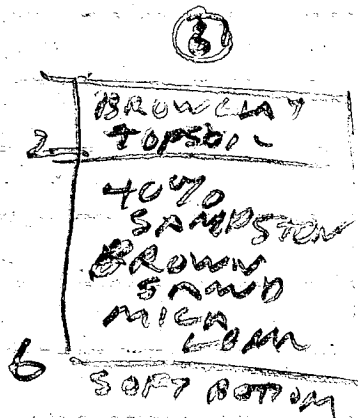 3
BROWCLAY
2 TOPSOIL
40%
SAMDSTON
BROWN
SAND
MICA
LOAM
6
SOFT BOTTOM